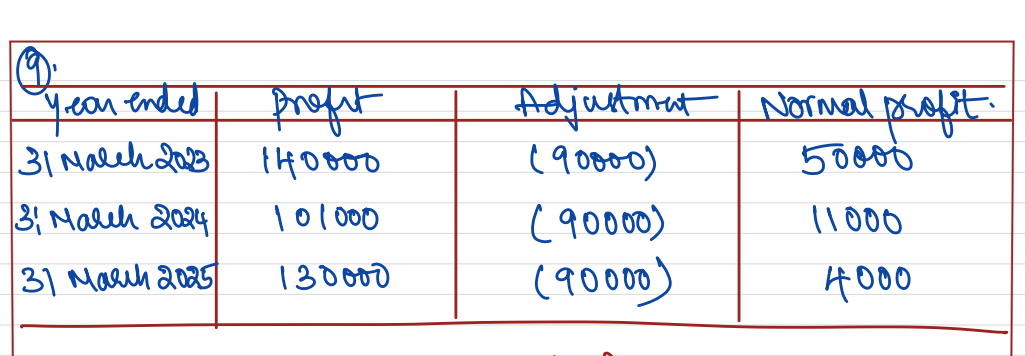 9.
Year ended Profit Adjustment Normal profit.
31 March 2023 140000 (90000) 50000
31 March 2024 101000 (90000) 11000
31 March 2025 130000 (90000) 4000